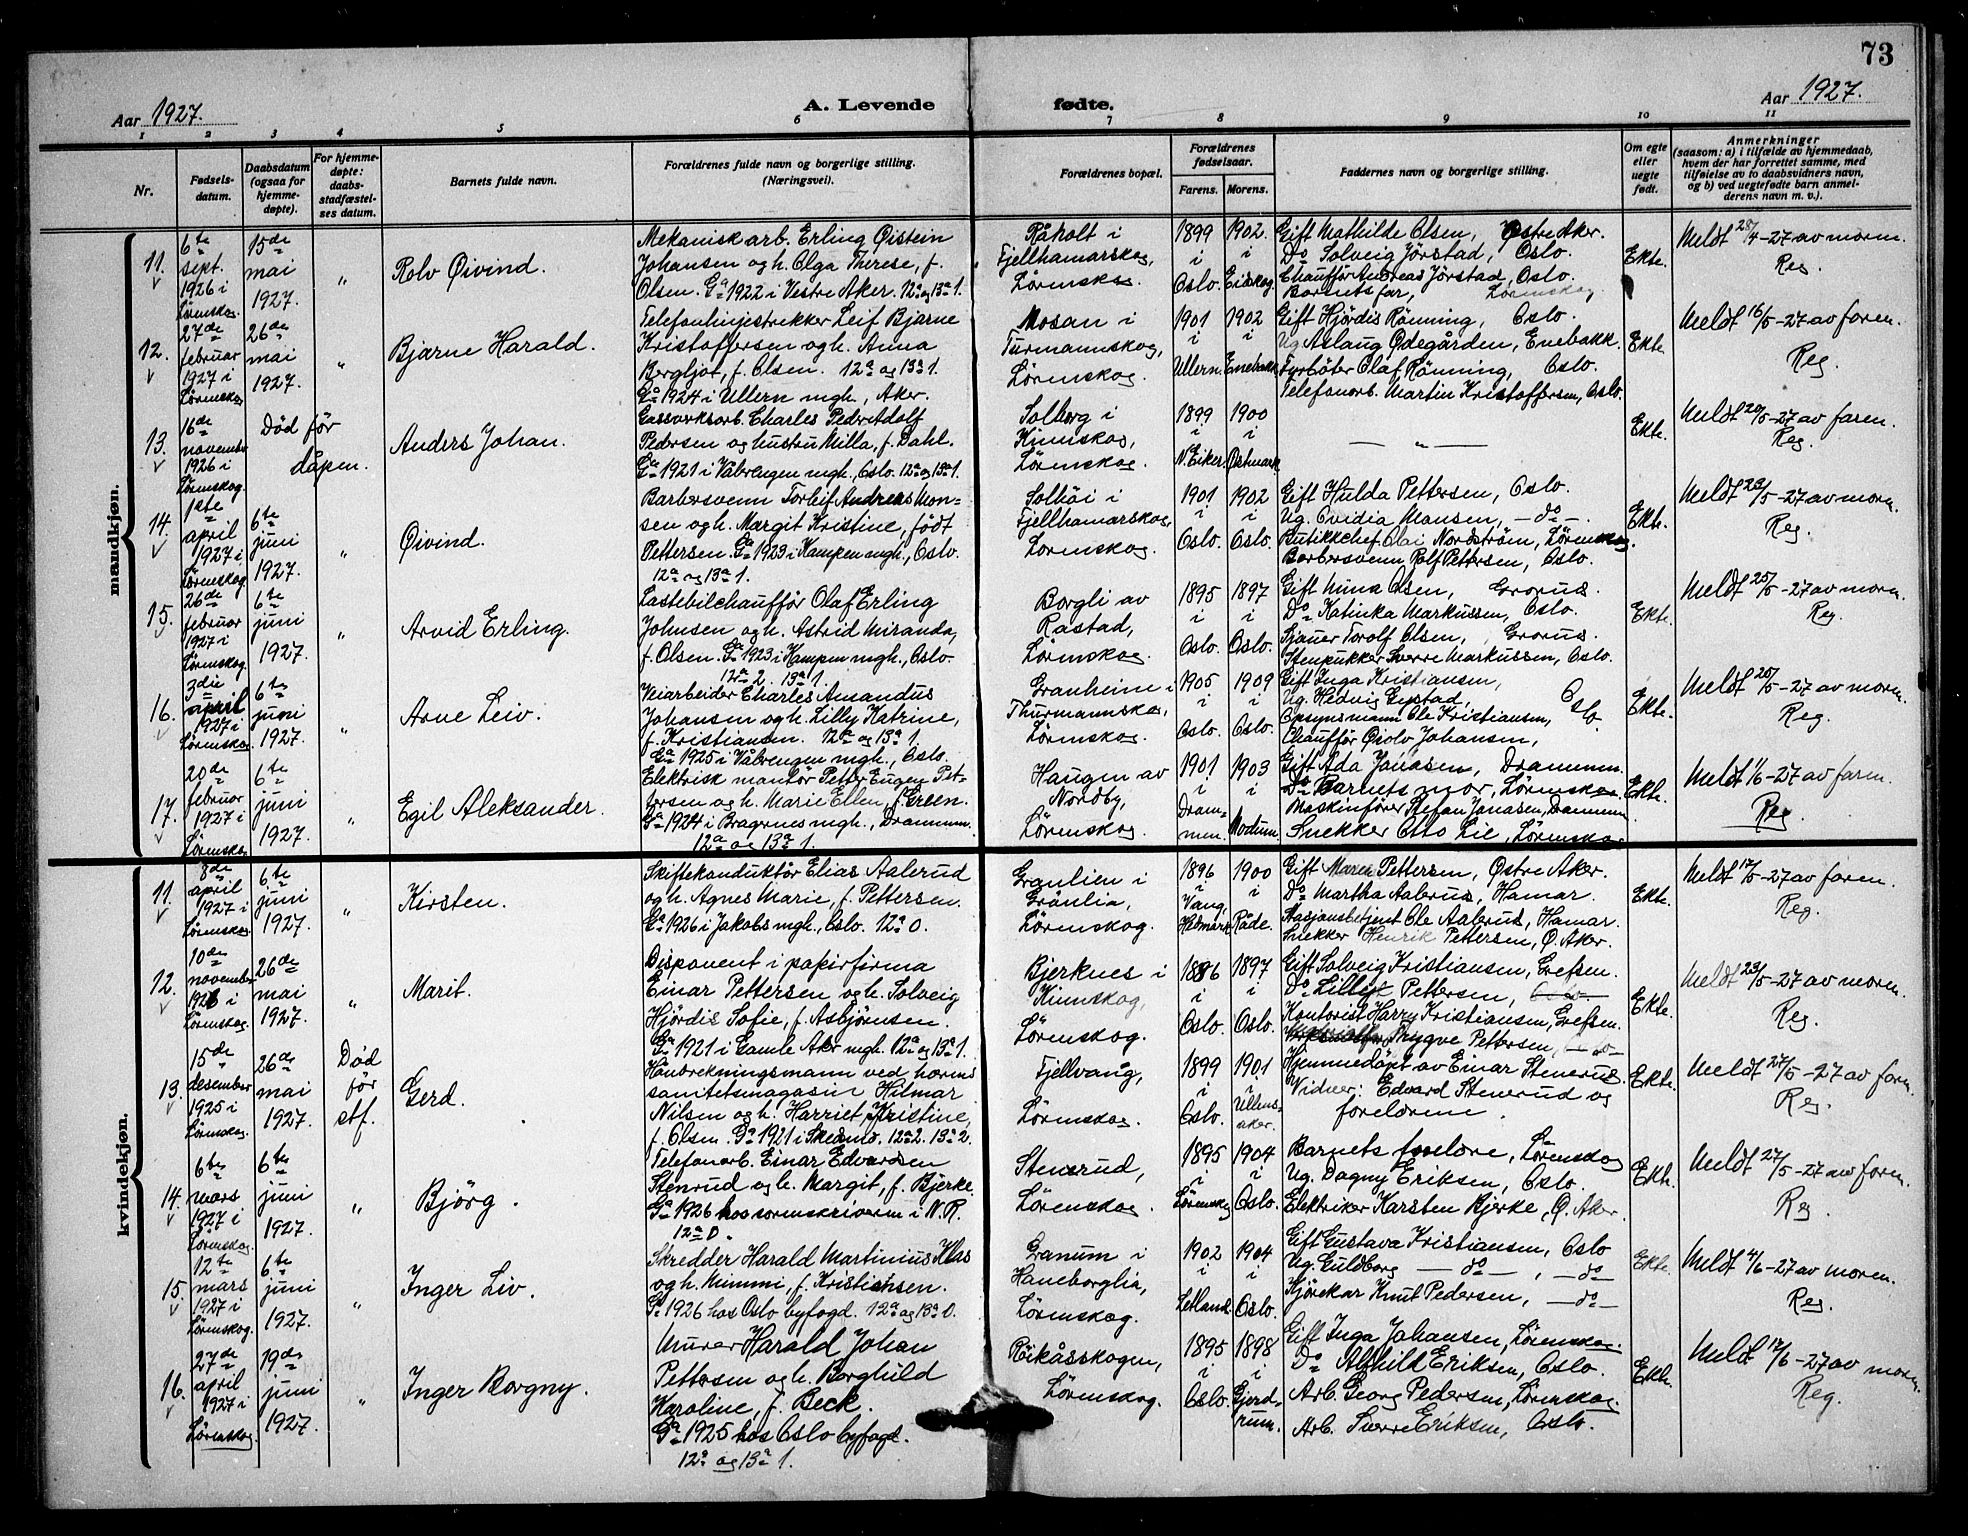 73
Aar 1927.
A. Levende fødte.
Aar 1927.
1 2 3 4 5 6 7 8 9 10 11
Nr.
Fødsels-
datum.
Daabsdatum
(ogsaa for
hjemme-
døpte).
For hjemme-
døpte:
daabs-
stadfæstel-
ses datum.
Barnets fulde navn.
Forældrenes fulde navn og borgerlige stilling.
(Næringsvei).
Forældrenes bopæl.
Forældrenes
fødselsaar.
Farens. Morens.
Faddernes navn og borgerlige stilling.
Om egte
eller
uegte
født.
Anmerkninger
(saasom: a) i tilfælde av hjemmedaab,
hvem der har forrettet samme, med
tilføielse av to daabsvidners navn,
og b) ved uegtefødte barn anmel-
derens navn m. v.).
mandkjøn.
11.
6te
sept.
1926 i
Lørenskog.
15de
mai
1927.
"
Rolv Øivind.
Mekanisk arb. Erling Øistein
Johansen og h. Olga Therese, f.
Olsen. Ga 1922 i Vestre Aker. 12a og 13a 1.
Råholt i
Fjellhamarskog,
Lørenskog.
1899
i
Oslo.
1902.
i
Eidskog.
Gift Mathilde Olsen, Østre Aker.
Do Solveig Jörstad, Oslo.
Chaufför Andreas Jörstad, Oslo.
Barnets far, Lørenskog.
Ekte.
Meldt 28/4-27 av moren.
Reg.
12.
27de
februar
1927 i
Lørenskog
26de
mai
1927.
"
Bjarne Harald.
Telefonlinjestrekker Leif Bjarne
Kristoffersen og h. Anna
Bergljot, f. Olsen. 12a og 13a 1.
Ga 1924 i Ullern mgh., Aker.
Mosan i
Turmannskog,
Lørenskog.
1901
i
Ullern.
1902
i
Enebakk.
Gift Hjördis Rönning, Oslo.
Ug. Aslaug Ödegården, Enebakk.
Fyrböter Olaf Rönning, Oslo.
Telefonarb. Martin Kristoffersen, Oslo.
Ekte.
Meldt 16/5-27 av faren.
Reg.
13.
16de
november
1926 i
Lørenskog.
Død før
dåpen.
Anders Johan.
Gassverksarb. Charles Peder Adolf
Pedersen og hustru Milla, f. Dahl.
Ga 1921 i Vålerengen mgh., Oslo. 12a og 13a 1.
Solberg i
Kinnskog,
Lørenskog.
1899
i
N. Eiker.
1900
i
Östmark.
— " —
Ekte.
Meldt 20/5-27 av faren.
Reg.
14.
1ste
april
1927 i
Lørenskog.
6te
juni
1927.
"
Øivind.
Barbersvenn Torleif Andreas Mon-
sen og h. Margit Kristine, født
Pettersen. Ga 1923 i Kampen mgh., Oslo.
12a og 13a 1.
Solhöi i
Fjellhamarskog,
Lørenskog.
1901
i
Oslo.
1902
i
Oslo.
Gift Hulda Pettersen, Oslo.
Ug. Ovidia Monsen, — do —.
Butikkchef Olai Nordström, Lørenskog.
Barbersvenn Rolf Pettersen, Oslo.
Ekte.
Meldt 23/5-27 av moren.
Reg.
15.
26de
februar
1927 i
Lørenskog
6te
juni
1927.
"
Arvid Erling.
Lastebilchauffør Olaf Erling
Johnsen og h. Astrid Miranda,
f. Olsen. Ga 1923 i Kampen mgh., Oslo.
12a 2. 13a 1.
Borgli av
Rastad,
Lørenskog.
1895
i
Oslo.
1897
i
Oslo.
Gift Mina Olsen, Grorud.
Do Katinka Markussen, Oslo.
Sjauer Torolf Olsen, Grorud.
Stenpukker Sverre Markussen, Oslo.
Ekte.
Meldt 25/5-27 av moren.
Reg.
16.
3die
april
1927 i
Lørenskog.
6te
juni
1927.
"
Arne Leiv.
Veiarbeider Charles Amandus
Johansen og h. Lilly Katrine,
f. Kristiansen. 12a og 13a 1.
Ga 1925 i Vålerengen mgh., Oslo.
Granheim i
Thurmannskog,
Lørenskog.
1905
i
Oslo.
1909
i
Oslo.
Gift Inga Kristiansen,
Ug. Hedvig Gystad, Oslo.
Opsynsmann Ole Kristiansen,
Chauffør Øiolv Johansen,
Ekte.
Meldt 25/5-27 av moren.
Reg.
17.
20de
februar
1927 i
Lørenskog
6te
juni
1927.
"
Egil Aleksander.
Elektrisk montör Petter Eugen Pet-
tersen og h. Marie Ellen, f. Green.
Ga 1924 i Bragernes mgh., Drammen.
12a og 13a 1.
Haugen av
Nordby,
Lørenskog.
1901
i
Dram-
men.
1903
i
Modum.
Gift Ada Jonasen, Drammen.
Do Barnets mor, Lørenskog.
Maskinfører Stefan Jonasen, Drammen.
Snekker Otto Lie, Lørenskog.
Ekte.
Meldt 1/6-27 av faren.
Reg.
kvindekjøn.
11.
8de
april
1927 i
Lørenskog.
6te
juni
1927.
"
Kirsten.
Skiftekonduktör Elias Aalerud
og h. Agnes Marie, f. Pettersen.
Ga 1926 i Jakobs mgh., Oslo. 12a 0.
Granlien i
Grönlia,
Lørenskog.
1896
i
Vang,
Hedmark.
1900
i
Råde.
Gift Maren Pettersen, Østre Aker.
Do Martha Aalerud, Hamar.
Stasjonsbetjent Ole Aalerud, Hamar.
Snekker Henrik Pettersen, Ø. Aker.
Ekte.
Meldt 12/5-27 av faren.
Reg.
12.
10de
november
1926 i
Lørenskog.
26de
mai
1927.
"
Marit.
Disponent i papirfirma
Einar Pettersen og h. Solveig
Hjördis Sofie, f. Asbjörnsen.
Ga 1921 i Gamle Aker mgh. 12a og 13a 1.
Bjerknes i
Kinnskog,
Lørenskog.
1896
i
Oslo.
1897
i
Oslo.
Gift Solveig Kristiansen, Grefsen.
Do Lilly Pettersen, Oslo.
Kontorist Harry Kristiansen, Grefsen.
Trygve Pettersen, Oslo
Ekte.
Meldt 23/5-27 av moren.
Reg.
13.
15de
desember
1925 i
Lørenskog.
26de
mai
1927.
Død
før
stf.
Gerd.
Håndrekningsmann ved hærens
sanitetsmagasin Hilmar
Nilsen og h. Harriet Kristine,
f. Olsen. Ga 1921 i Skedsmo. 12a 2. 13a 2.
Fjellvang,
Lørenskog.
1899
i
Oslo.
1901
i
Ullens-
aker.
Hjemmedøpt av Einar Stenerud.
Vidner: Edvard Stenerud og
foreldrene.
Ekte.
Meldt 27/5-27 av faren.
Reg.
14.
6te
mars
1927 i
Lørenskog.
6te
juni
1927.
"
Björg.
Telefonarb. Einar Edvardsen
Stenrud og h. Margit, f. Bjerke.
Ga 1926 hos sorenskriveren i N. R.
12a 0.
Stenerud,
Lørenskog.
1895
i
Lørenskog
1904
i
Oslo.
Barnets foreldre, Lørenskog
Ug. Dagny Eriksen, Oslo.
Elektriker Karsten Bjerke, Ø. Aker.
Ekte.
Meldt 27/5-27 av faren.
Reg.
15.
12te
mars
1927 i
Lørenskog.
6te
juni
1927.
"
Inger Liv.
Skredder Harald Martinius Klas
og h. Mimmi, f. Kristiansen.
Ga 1926 hos Oslo byfogd. 12a og 13a 0.
Granum i
Haneborglia,
Lørenskog.
1902
i
Letland.
1904
i
Oslo.
Gift Gustava Kristiansen, Oslo
Ug. Guldborg — do —, — do —
Kjörekar Knut Pedersen, — do —
Ekte.
Meldt 4/6-27 av moren.
Reg.
16.
27de
april
1927 i
Lørenskog.
19de
juni
1927.
"
Inger Borgny.
Murer Harald Johan
Pettersen og h. Borghild
Karoline, f. Beck.
Ga 1925 hos Oslo byfogd.
12a og 13a 1.
Röikåsskogen,
Lørenskog.
1895
i
Oslo.
1898
i
Gjerd-
rum.
Gift Inga Johansen, Lørenskog.
Do Alfhild Eriksen, Oslo.
Arb. Georg Pedersen, Lørenskog.
Arb. Sverre Eriksen, Oslo.
Ekte.
Meldt 17/6-27 av moren.
Reg.